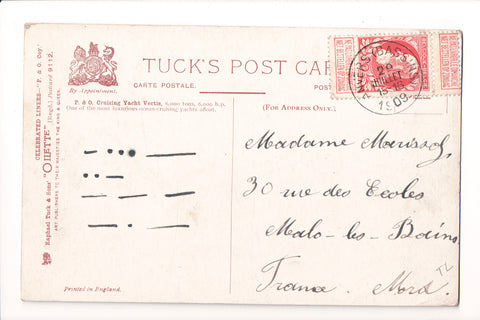 TUCK'S POST CAR
CARTE POSTALE.
POS
By Appointment.
P. & O. Cruising Yacht Vectis, 6,000 tons, 6,000 h.p.
One of the most luxurious ocean-cruising yachts afloat.
(FOR ADDRESS ONLY.)
CELEBRATED LINERS—"P. & O. Coy."
Raphael Tuck & Sons' "OILETTE" [Regd.] Postcard 9112.
ART PUBLISHERS TO THEIR MAJESTIES THE KING & QUEEN.
ANVERS (BASSIN
29
JUILLET
1909
Madame Marissol,
30 rue des Ecoles
Malo-les-Bains
France. Nord.
TL
Printed in England.